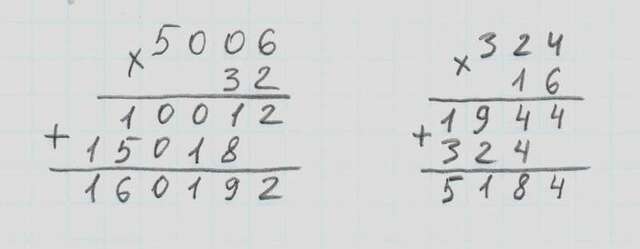 × 5006
32
10012
+ 15018
160192
× 324
16
1944
+ 324
5184